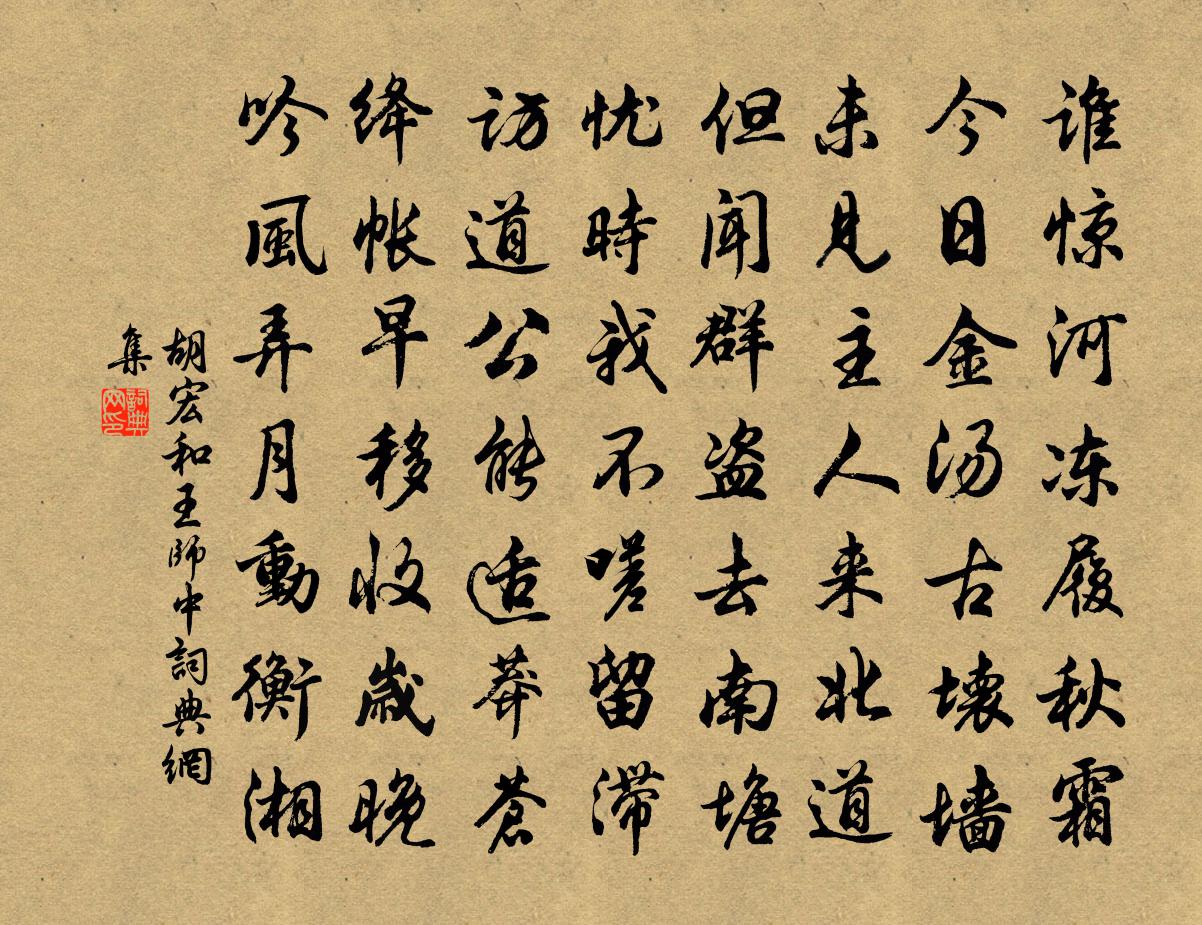 谁惊河冻履秋霜
今日金汤古坏墙
未见主人来北道
但闻群盗去南塘
忧時我不嗟留滞
访道公能适莽苍
绛帐早移收岁晚
吟風弄月動衡湘
胡宏和王師中詞典網
集
詞典网印